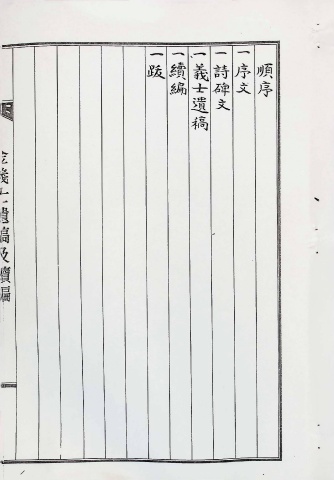 順序
一序文
一詩碑文
一義士遺稿
一續編
一跋
義士遺稿及續編